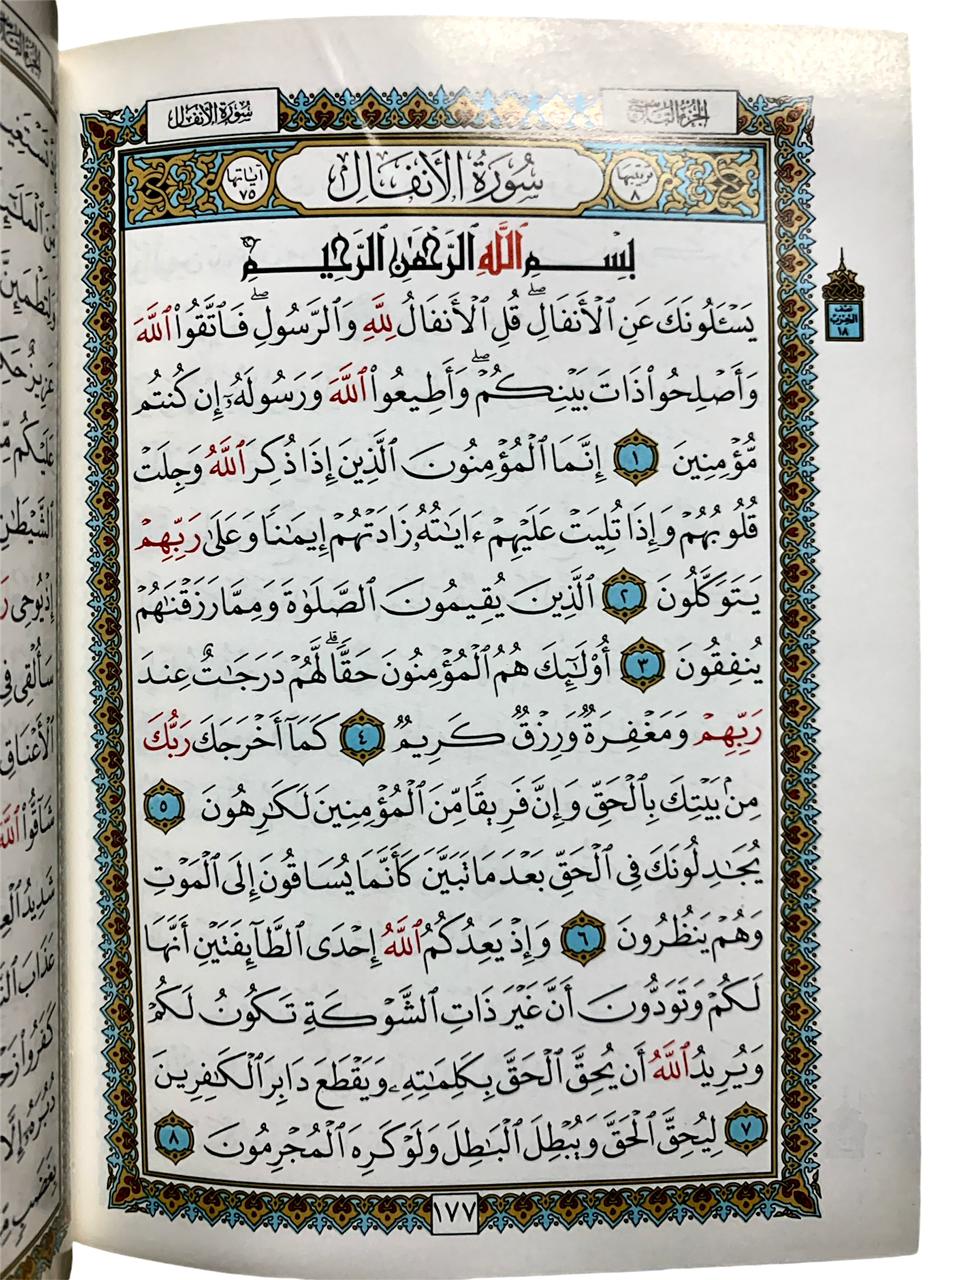 سُورَةُ الأَنفَالِ
الجُزْءُ التَّاسِعُ
تَرْتِيبُهَا ٨
سُورَةُ الأَنفَالِ
آيَاتُهَا ٧٥
بِسْمِ ٱللَّهِ ٱلرَّحْمَٰنِ ٱلرَّحِيمِ
يَسْـَٔلُونَكَ عَنِ ٱلْأَنفَالِۖ قُلِ ٱلْأَنفَالُ لِلَّهِ وَٱلرَّسُولِۖ فَٱتَّقُوا۟ ٱللَّهَ
وَأَصْلِحُوا۟ ذَاتَ بَيْنِكُمْۖ وَأَطِيعُوا۟ ٱللَّهَ وَرَسُولَهُۥٓ إِن كُنتُم
مُّؤْمِنِينَ ١ إِنَّمَا ٱلْمُؤْمِنُونَ ٱلَّذِينَ إِذَا ذُكِرَ ٱللَّهُ وَجِلَتْ
قُلُوبُهُمْ وَإِذَا تُلِيَتْ عَلَيْهِمْ ءَايَٰتُهُۥ زَادَتْهُمْ إِيمَٰنًا وَعَلَىٰ رَبِّهِمْ
يَتَوَكَّلُونَ ٢ ٱلَّذِينَ يُقِيمُونَ ٱلصَّلَوٰةَ وَمِمَّا رَزَقْنَٰهُمْ
يُنفِقُونَ ٣ أُو۟لَٰٓئِكَ هُمُ ٱلْمُؤْمِنُونَ حَقًّاۚ لَّهُمْ دَرَجَٰتٌ عِندَ
رَبِّهِمْ وَمَغْفِرَةٌ وَرِزْقٌ كَرِيمٌ ٤ كَمَآ أَخْرَجَكَ رَبُّكَ
مِنۢ بَيْتِكَ بِٱلْحَقِّ وَإِنَّ فَرِيقًا مِّنَ ٱلْمُؤْمِنِينَ لَكَٰرِهُونَ ٥
يُجَٰدِلُونَكَ فِى ٱلْحَقِّ بَعْدَ مَا تَبَيَّنَ كَأَنَّمَا يُسَاقُونَ إِلَى ٱلْمَوْتِ
وَهُمْ يَنظُرُونَ ٦ وَإِذْ يَعِدُكُمُ ٱللَّهُ إِحْدَى ٱلطَّآئِفَتَيْنِ أَنَّهَا
لَكُمْ وَتَوَدُّونَ أَنَّ غَيْرَ ذَاتِ ٱلشَّوْكَةِ تَكُونُ لَكُمْ
وَيُرِيدُ ٱللَّهُ أَن يُحِقَّ ٱلْحَقَّ بِكَلِمَٰتِهِۦ وَيَقْطَعَ دَابِرَ ٱلْكَٰفِرِينَ
٧ لِيُحِقَّ ٱلْحَقَّ وَيُبْطِلَ ٱلْبَٰطِلَ وَلَوْ كَرِهَ ٱلْمُجْرِمُونَ ٨
١٧٧
نصف
الحزب
١٨